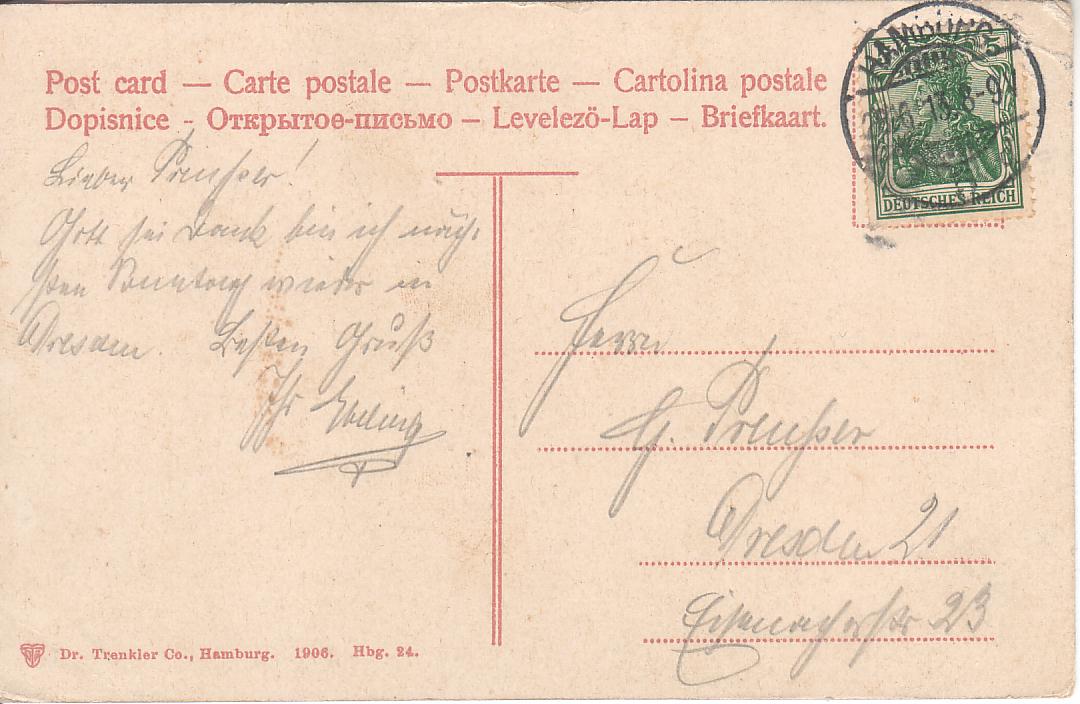 Post card — Carte postale — Postkarte — Cartolina postale
Dopisnice - Открытое-письмо — Levelezö-Lap — Briefkaart.
HAMBURG
5
DEUTSCHES REICH
Lieber Preusser!
Gott sei Dank bin ich näch-
sten Sonntag wieder in
Dresden. Besten Gruß
Ihr
Herrn
G. Preusser
Dresden 21
Eisenacherstr 23
Dr. Trenkler Co., Hamburg. 1906. Hbg. 24.